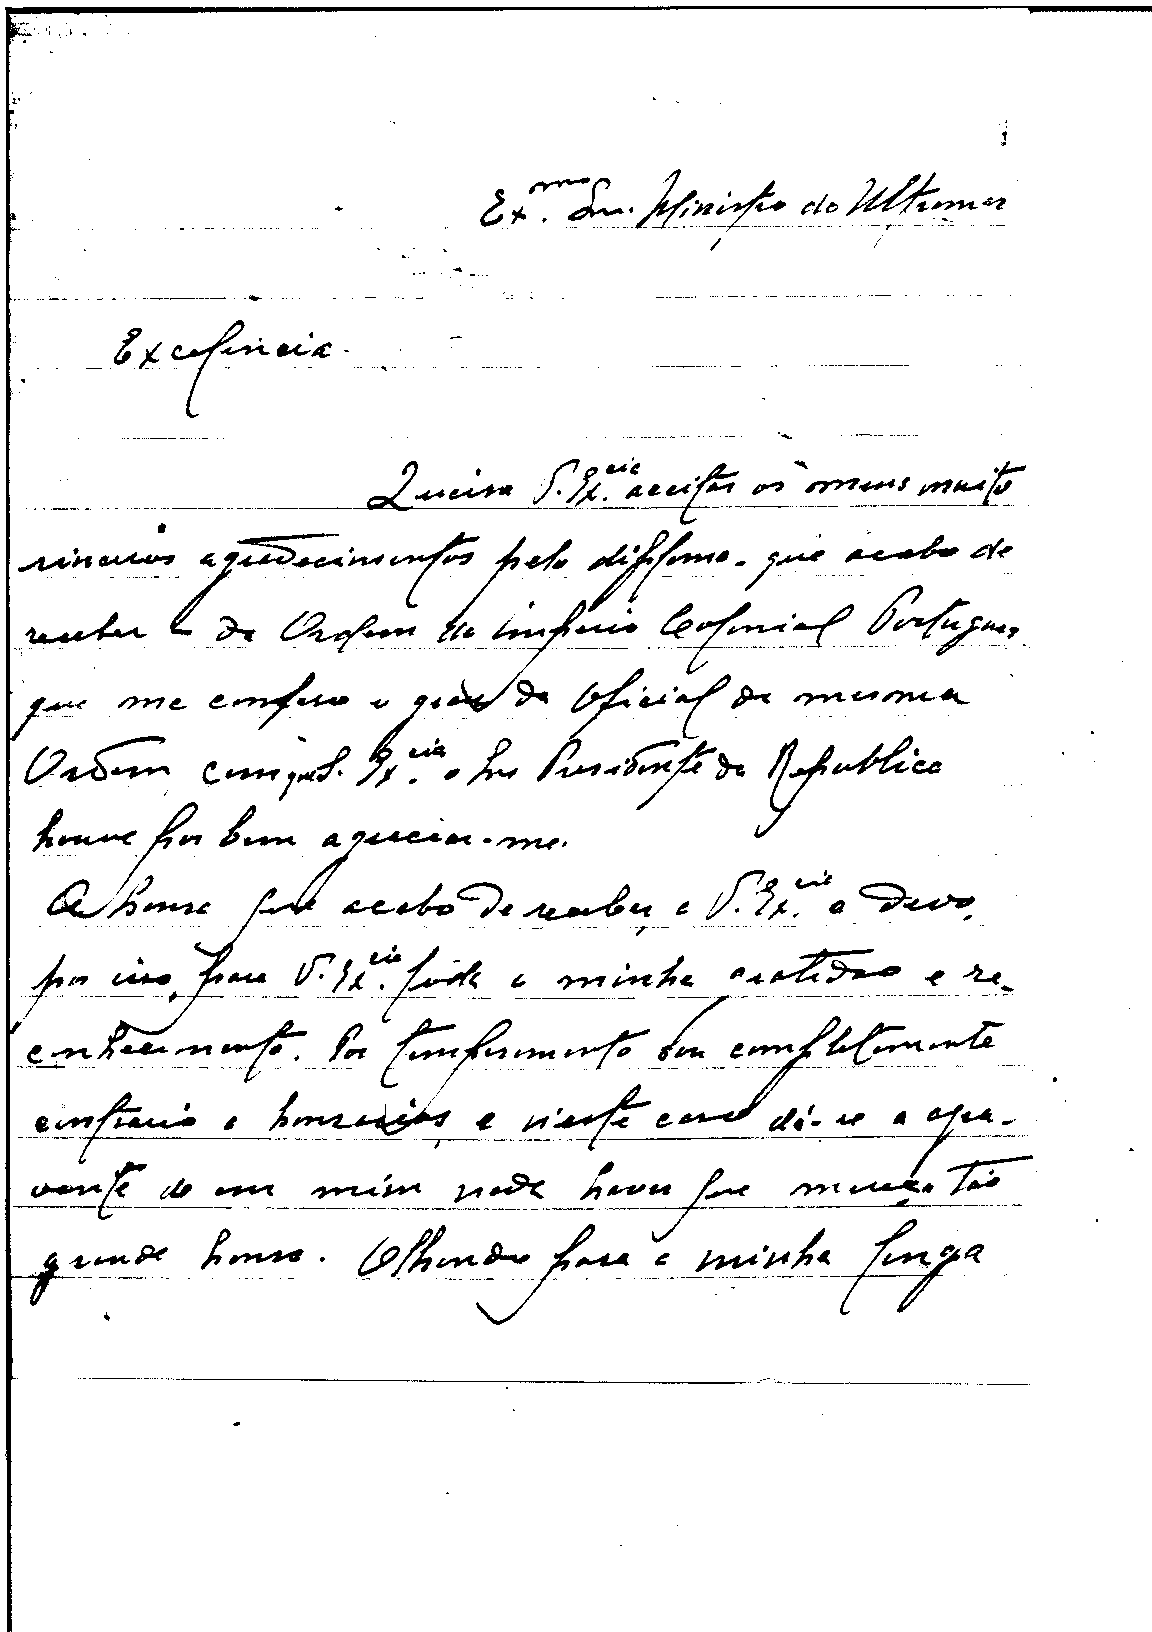 Ex.mo Snr. Ministro do Ultramar
Excelência.
Queira V. Ex.cia aceitar os meus muito
sinceros agradecimentos pelo diploma que acabo de
receber da Ordem do Império Colonial Portuguez,
que me confere o grau de Oficial da mesma
Ordem com que S. Ex.cia o Snr Presidente da Republica
houve por bem agraciar-me.
A honra que acabo de receber, a V. Ex.cia a devo,
por isso, para V. Ex.cia toda a minha gratidão e re-
conhecimento. Por temperamento sou completamente
contrario a honrarias, e neste caso dá-se a agra-
vante de em mim nada haver que mereça tão
grande honra. Olhando para a minha longa